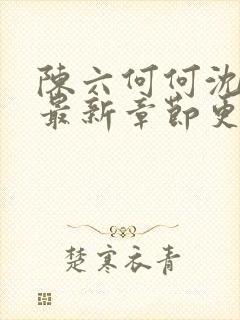 陳六何何沈
最新章節更
楚寒衣青